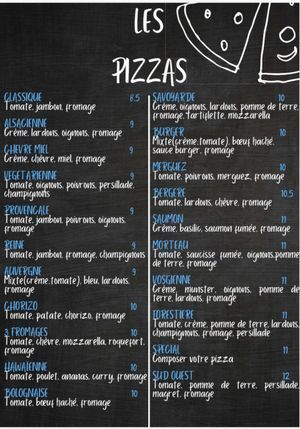 LES
PIZZAS
CLASSIQUE 8.5
Tomate, jambon, fromage
ALSACIENNE 9
Crème, lardons, oignons, fromage
CHEVRE MIEL 9
Crème, chèvre, miel, fromage
VEGETARIENNE 9
Tomate, oignons, poivrons, persillade,
champignons
PROVENCALE 9
Tomate, jambon, poivrons, oignons,
fromage
REINE 9
Tomate, jambon, fromage, champignons
AUVERGNE 9
Mixte(crème,tomate), bleu, lardons,
fromage
CHORIZO 10
Tomate, patate, chorizo, fromage
3 FROMAGES 10
Tomate, chèvre, mozzarella, roquefort,
fromage
HAWAIENNE 10
Tomate, poulet, ananas, curry, fromage
BOLOGNAISE 10
Tomate, bœuf haché, fromage
SAVOYARDE 10
Crème, oignons, lardons, pomme de terre,
fromage, tartiflette, mozzarella
BURGER 10
Mixte(crème,tomate), bœuf haché,
sauce burger, fromage
MERGUEZ 10
Tomate, poivrons, merguez, fromage
BERGERE 10.5
Tomate, lardons, chèvre, fromage
SAUMON 11
Crème, basilic, saumon fumée, fromage
MORTEAU 11
Tomate, saucisse fumée, oignons,pomme
de terre, fromage
VOSGIENNE 11
Crème, munster, oignons, pomme de
terre, lardons, fromage
FORESTIERE 11
Tomate, crème, pomme de terre, lardons,
champignons, fromage, persillade
SPECIAL 11
Composer votre pizza
SUD OUEST 12
Tomate, pomme de terre, persillade,
magret, fromage